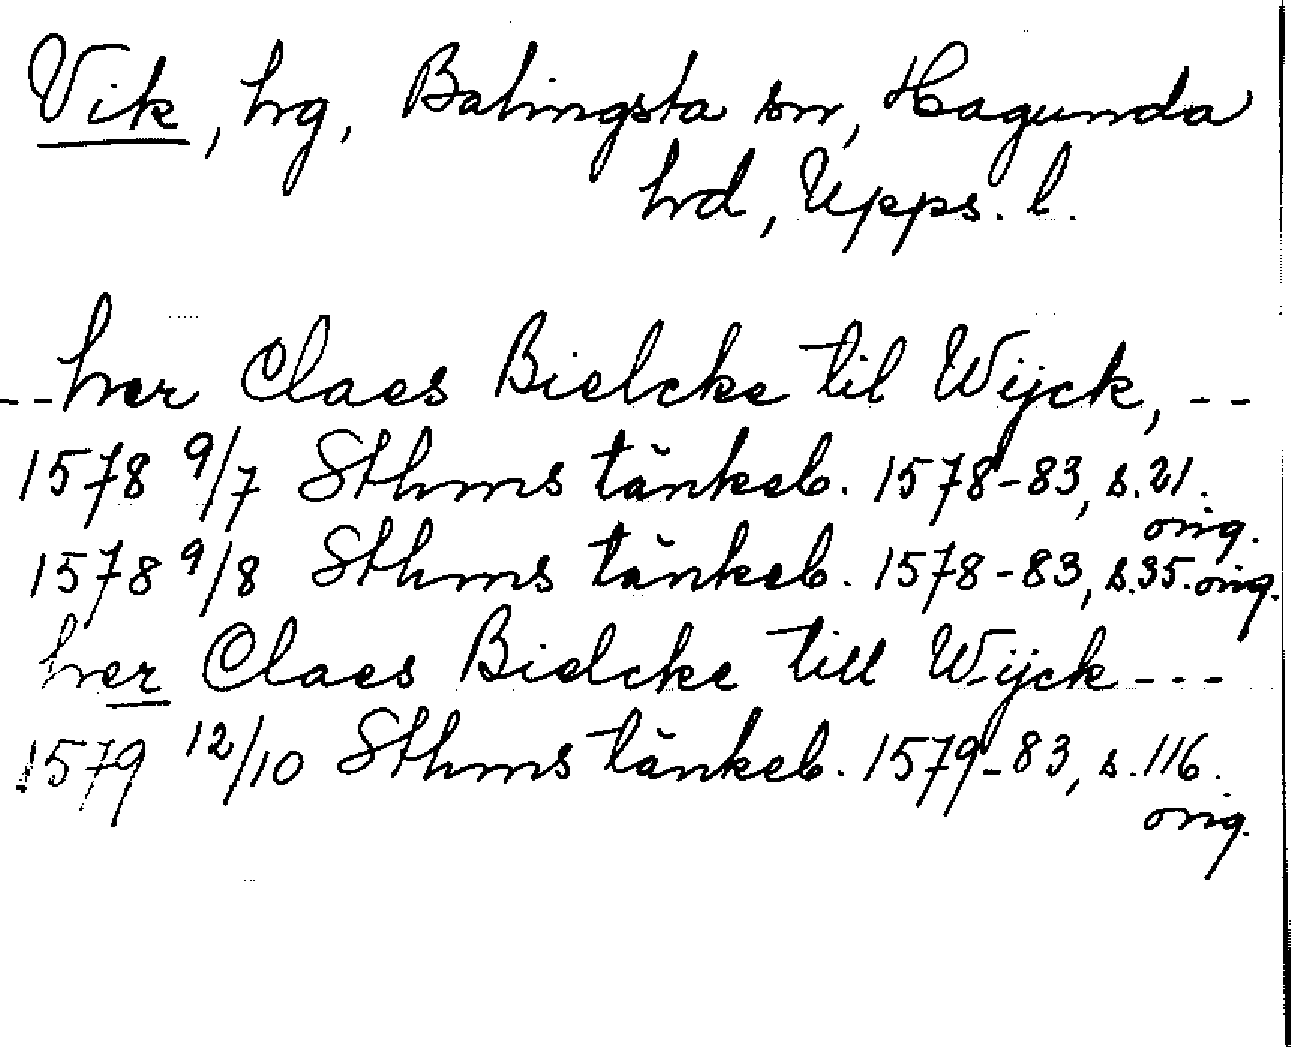 Vik, hg, Balingsta sn, Hagunda
hrd, Upps. l.
-- her Claes Bielcke til Wijck, --
1578 9/7 Sthms tänkeb. 1578-83, s. 21.
orig.
1578 9/8 Sthms tänkeb. 1578-83, s. 35. orig.
her Claes Bielcke till Wijck ---
1579 12/10 Sthms tänkeb. 1579-83, s. 116.
orig.